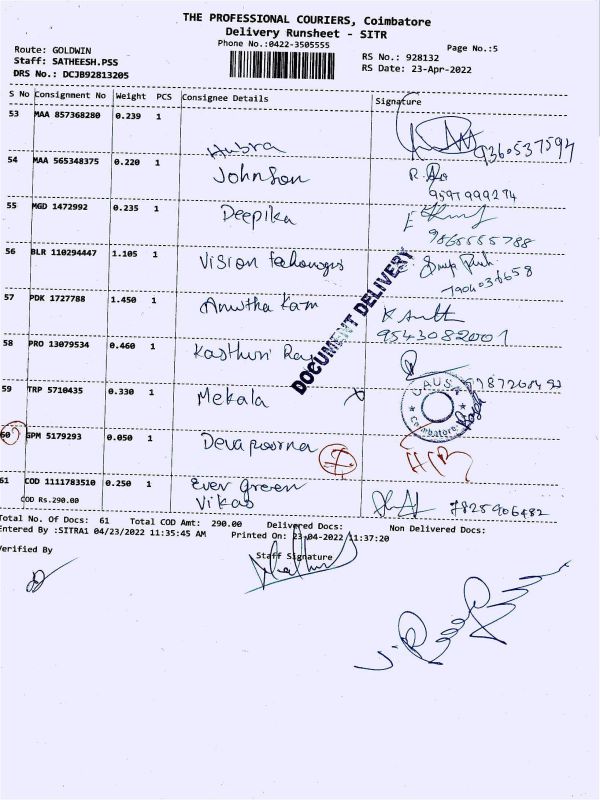 THE PROFESSIONAL COURIERS, Coimbatore
Delivery Runsheet - SITR
Phone No.:0422-3505555
Page No.:5
Route: GOLDWIN
Staff: SATHEESH.PSS
DRS No.: DCJB92813205
RS No.: 928132
RS Date: 23-Apr-2022
S No Consignment No Weight PCS Consignee Details Signature
53 MAA 857368280 0.239 1 Hubra 9360537597
54 MAA 565348375 0.220 1 Johnson
9597999274
55 MGD 1472992 0.235 1 Deepika
9865555788
56 BLR 110294447 1.105 1 Vision
57 PDK 1727788 1.450 1 Amutha Ram
9543082001
58 PRO 13079534 0.460 1 Kasthuri Raj
59 TRP 5710435 0.330 1 Mekala
60 GPM 5179293 0.050 1 Deva poorna
61 COD 1111783510 0.250 1 Ever green
COD Rs.290.00 Vikas 7825906482
DOCUMENT DELIVERY
Coimbatore
Total No. Of Docs: 61 Total COD Amt: 290.00 Delivered Docs: Non Delivered Docs:
Entered By :SITRA1 04/23/2022 11:35:45 AM Printed On: 23-04-2022 11:37:20
Verified By
Staff Signature